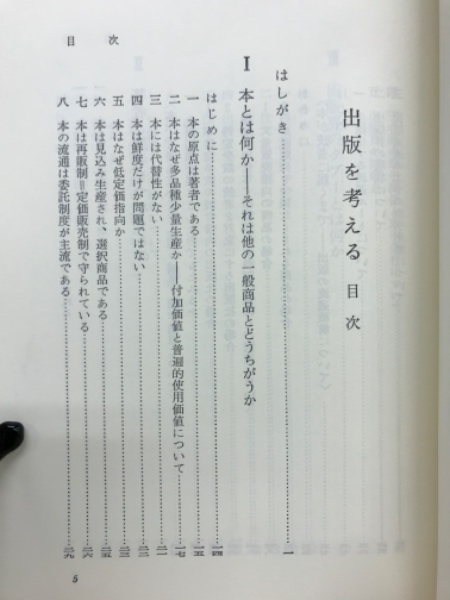 出版を考える 目次
はしがき……一
Ⅰ 本とは何か――それは他の一般商品とどうちがうか
はじめに……一四
一 本の原点は著者である……一五
二 本はなぜ多品種少量生産か――付加価値と普遍的使用価値について……一七
三 本には代替性がない……二一
四 本は鮮度だけが問題ではない……二二
五 本はなぜ低定価指向か……二三
六 本は見込み生産され、選択商品である……二五
七 本は再販制＝定価販売制で守られている……二六
八 本の流通は委託制度が主流である……二九
目次
5